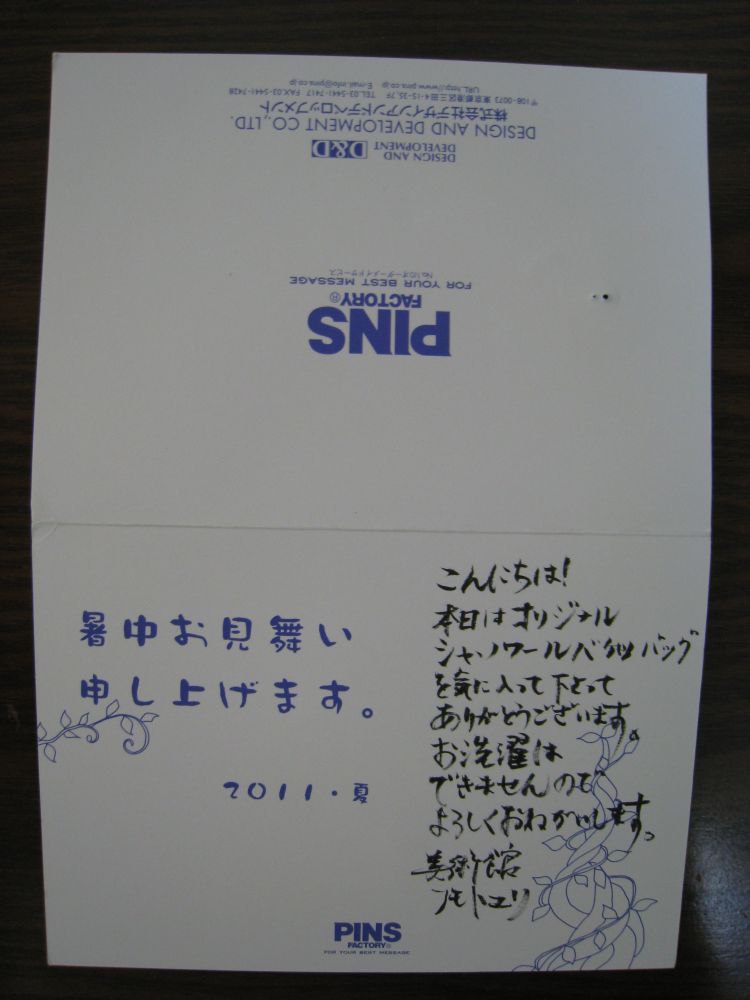 〒108-0073 東京都港区三田4-15-35.7F TEL.03-5441-7417 FAX.03-5441-7428
URL.http://www.pins.co.jp E-mail.info@pins.co.jp
株式会社デザインアンドデベロップメント
DESIGN AND DEVELOPMENT CO.,LTD.
DESIGN AND
DEVELOPMENT
D&D
No.1のオーダーメイドサービス
FOR YOUR BEST MESSAGE
FACTORY®
PINS
暑中お見舞い
申し上げます。
2011・夏
こんにちは!
本日はオリジナル
シャノワールバケツバッグ
を気に入って下さって
ありがとうございます。
お洗濯は
できませんので
よろしくおねがいします。
美術館
フモトユリ
PINS
FACTORY®
FOR YOUR BEST MESSAGE